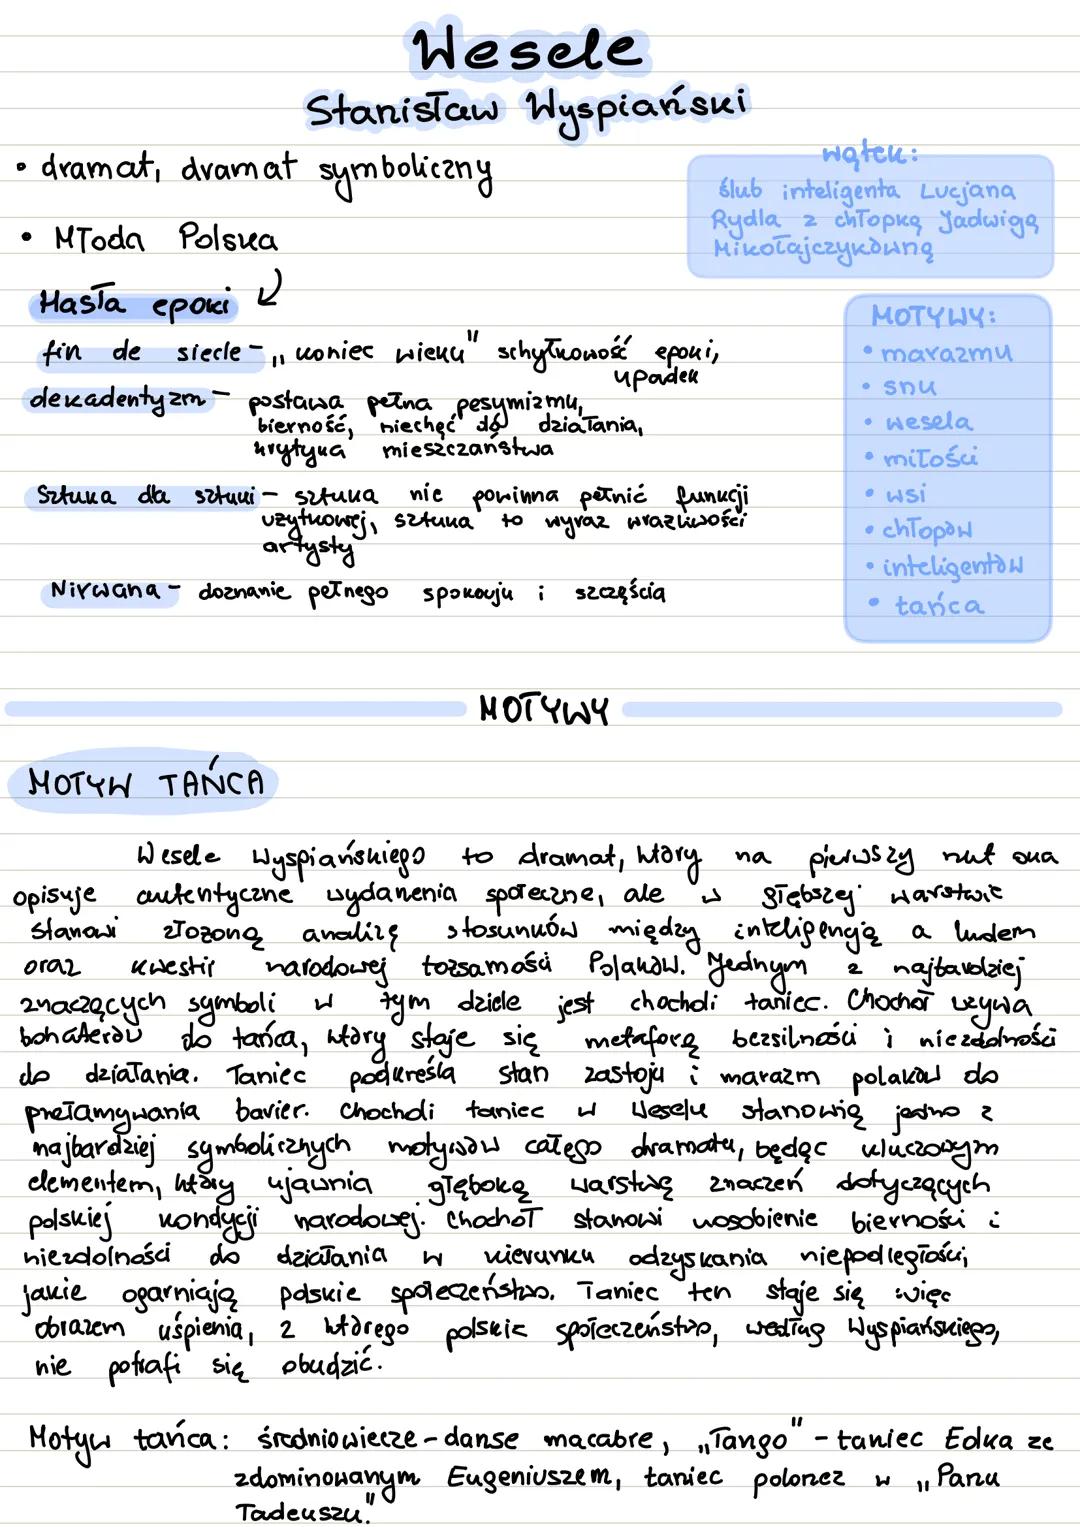 Wesele
Stanisław Wyspiański
• dramat, dramat symboliczny
• Młoda Polska
wątek:
ślub inteligenta Lucjana
Rydla z chłopką Jadwigą
Mikołajczykówną
Hasła epoki
fin de siecle - „koniec wieku" schyłkowość epoki,
upadek
dekadentyzm - postawa pełna pesymizmu,
bierność, niechęć do działania,
krytyka mieszczaństwa
Sztuka dla sztuki - sztuka nie powinna pełnić funkcji
użytkowej, sztuka to wyraz wrażliwości
artysty
Nirwana - doznanie pełnego spokouju i szczęścia
MOTYWY:
• marazmu
• snu
• wesela
• miłości
• wsi
• chłopów
• inteligentów
• tańca
MOTYWY
MOTYW TAŃCA
Wesele Wyspiańskiego to dramat, który na pierwszy rzut oka
opisuje autentyczne wydarzenia społeczne, ale w głębszej warstwie
stanowi złożoną analizę stosunków między inteligencją a ludem
oraz kwestii narodowej tożsamości Polaków. Jednym z najbardziej
znaczących symboli w tym dziele jest chocholi taniec. Chochoł używa
bohaterów do tańca, który staje się metaforą bezsilności i niezdolności
do działania. Taniec podkreśla stan zastoju i marazm polaków do
przełamywania barier. Chocholi taniec w Weselu stanowią jedno z
najbardziej symbolicznych motywów całego dramatu, będąc kluczowym
elementem, który ujawnia głęboką warstwę znaczeń dotyczących
polskiej kondycji narodowej. Chochoł stanowi uosobienie bierności i
niezdolności do działania w kierunku odzyskania niepodległości,
jakie ogarniają polskie społeczeństwo. Taniec ten staje się więc
obrazem uśpienia, z którego polskie społeczeństwo, według Wyspiańskiego,
nie potrafi się obudzić.
Motyw tańca: średniowiecze - danse macabre, „Tango" - taniec Edka ze
zdominowanym Eugeniuszem, taniec polonez w „Panu
Tadeuszu."